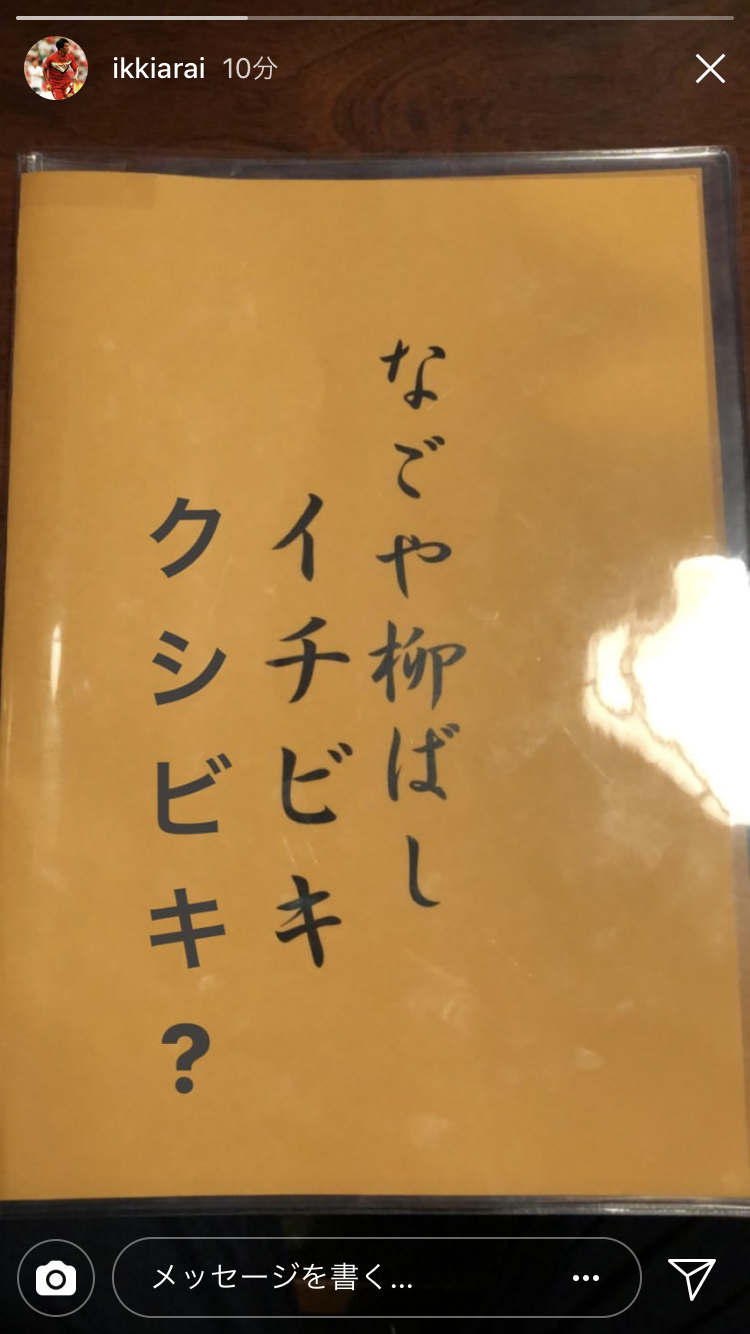 ikkiarai 10分
なごや柳ばし
イチビキ
クシビキ?
メッセージを書く...